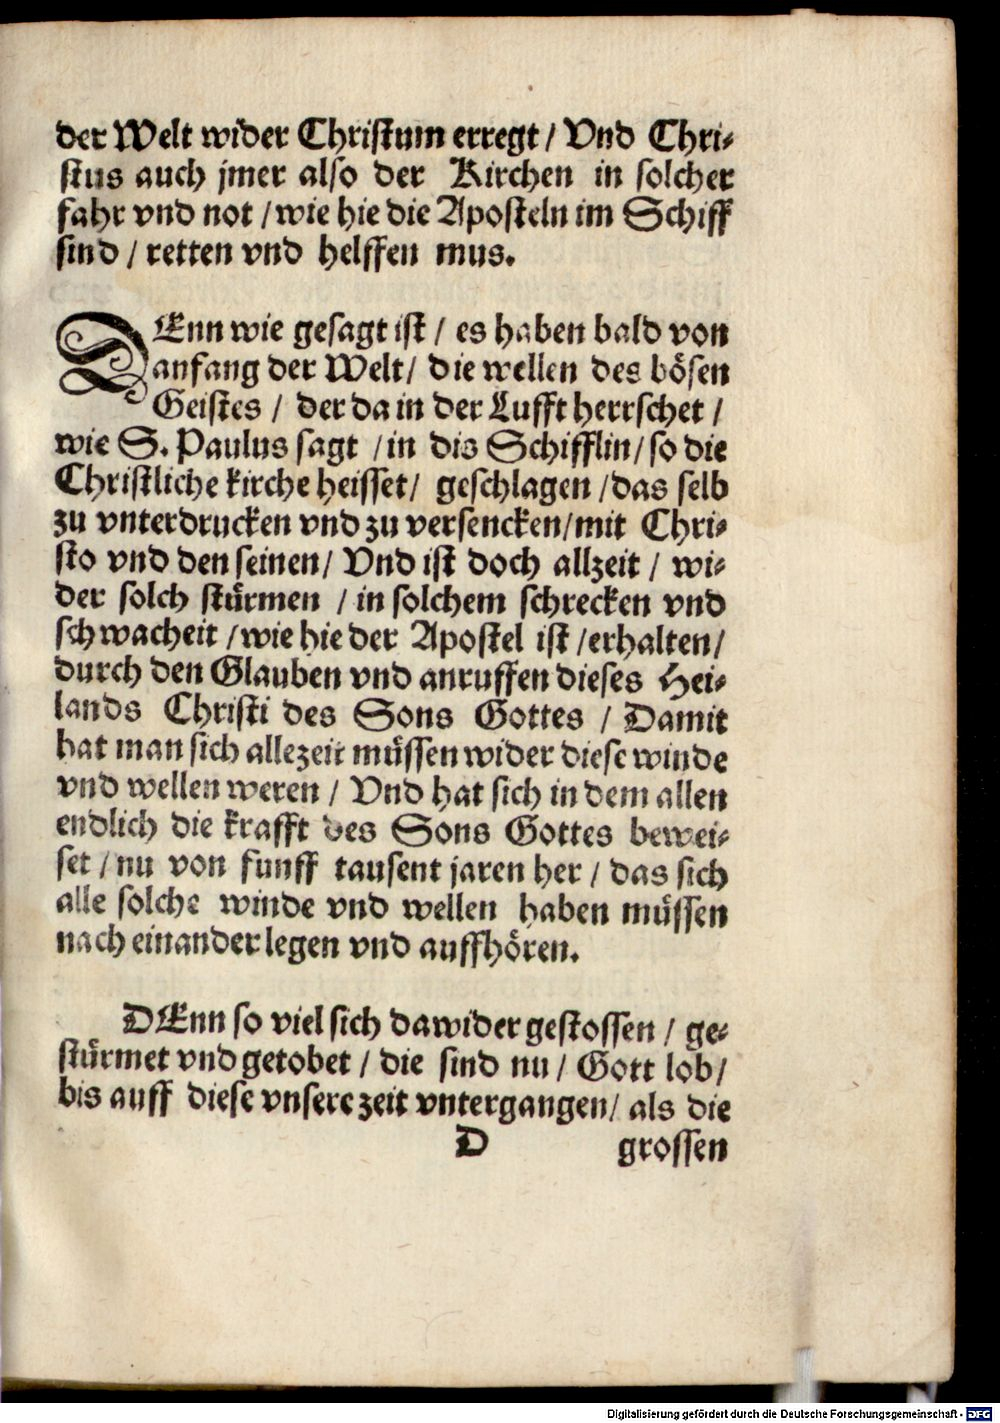 der Welt wider Christum erregt / Vnd Chri⸗
stus auch jmer also der Kirchen in solcher
fahr vnd not / wie hie die Aposteln im Schiff
sind / retten vnd helffen mus.
DEnn wie gesagt ist / es haben bald von
anfang der Welt / die wellen des bösen
Geistes / der da in der Lufft herrschet /
wie S. Paulus sagt / in dis Schifflin / so die
Christliche kirche heisset / geschlagen / das selb
zu vnterdrucken vnd zu versencken / mit Chri⸗
sto vnd den seinen / Vnd ist doch allzeit / wi⸗
der solch stürmen / in solchem schrecken vnd
schwacheit / wie hie der Apostel ist / erhalten /
durch den Glauben vnd anruffen dieses Hei⸗
lands Christi des Sons Gottes / Damit
hat man sich allezeit müssen wider diese winde
vnd wellen weren / Vnd hat sich in dem allen
endlich die krafft des Sons Gottes bewei⸗
set / nu von funff tausent jaren her / das sich
alle solche winde vnd wellen haben müssen
nach einander legen vnd auffhören.
DEnn so viel sich dawider gestossen / ge⸗
stürmet vnd getobet / die sind nu / Gott lob /
bis auff diese vnsere zeit vntergangen / als die
D grossen
Digitalisierung gefördert durch die Deutsche Forschungsgemeinschaft - DFG